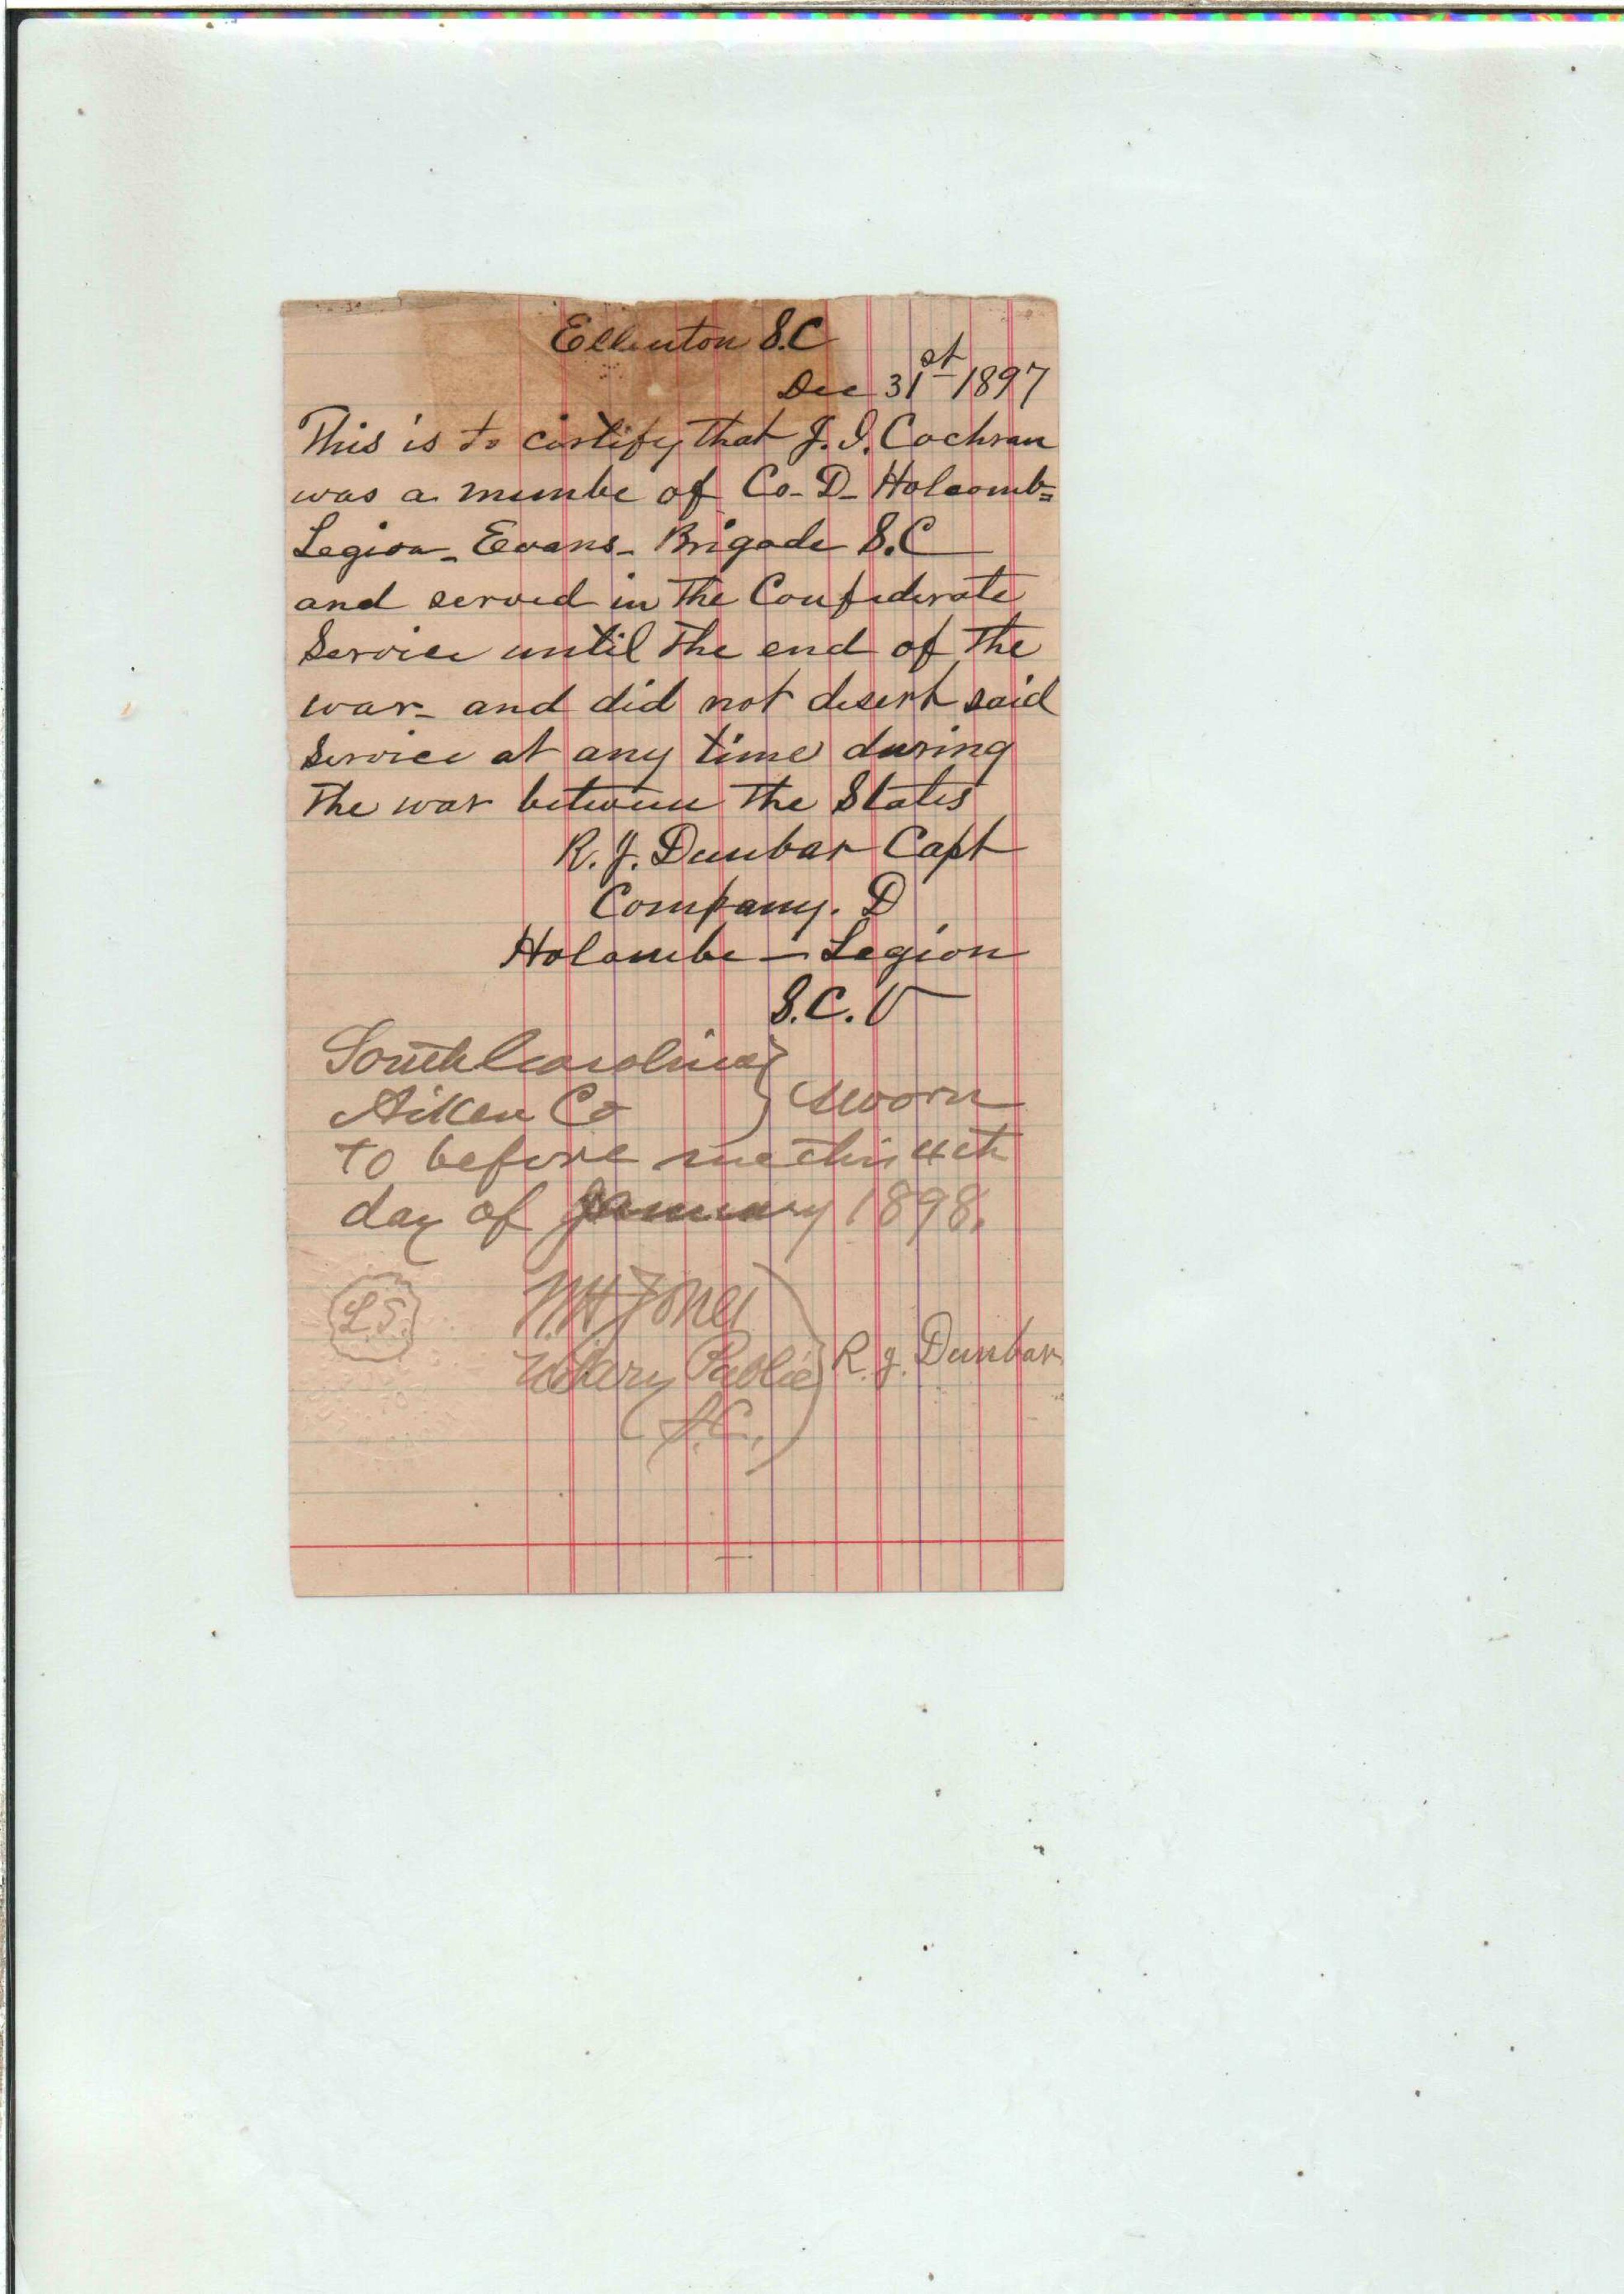 Ellenton S.C
Dec 31st 1897
This is to certify that J. I. Cochran
was a membe of Co- D- Holcomb=
Legion- Evans- Brigade S.C
and served in the Confederate
Service until the end of the
war- and did not desert said
Service at any time during
the war between the States
R. J. Dunbar Capt
Company. D
Holcombe - Legion
S.C. V
South Carolina }
Aiken Co } Sworn
to before me this 4th
day of January 1898.
L.S. W H Jones
Notary Public R. J. Dunbar
(S.C.)